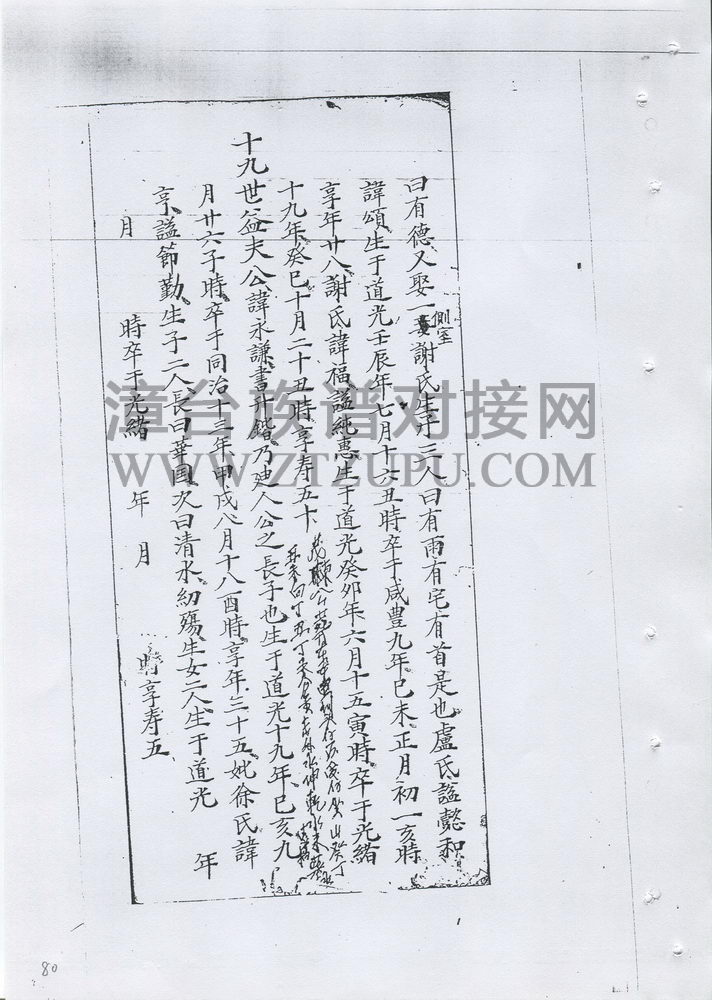 曰有德又娶一側室謝氏生子二人曰有雨有宅有首是也盧氏謚懿和
諱頌生于道光壬辰年七月十六丑時卒于咸豐九年己未正月初一亥時
享年廿八謝氏諱福謚純惠生于道光癸卯年六月十五寅時卒于光緒
十九年癸巳十月二十丑時享寿五十
十九世益夫公諱永謙書升鍇乃廸人公之長子也生于道光十九年己亥九
月廿六子時卒于同治十三年甲戌八月十八酉時享年三十五妣徐氏諱
享謚節勤生子二人長曰華国次曰清水幼殤生女二人生于道光 年
月 時卒于光緒 年 月 時享寿五
漳台族谱对接网
WWW.ZTZUPU.COM
80